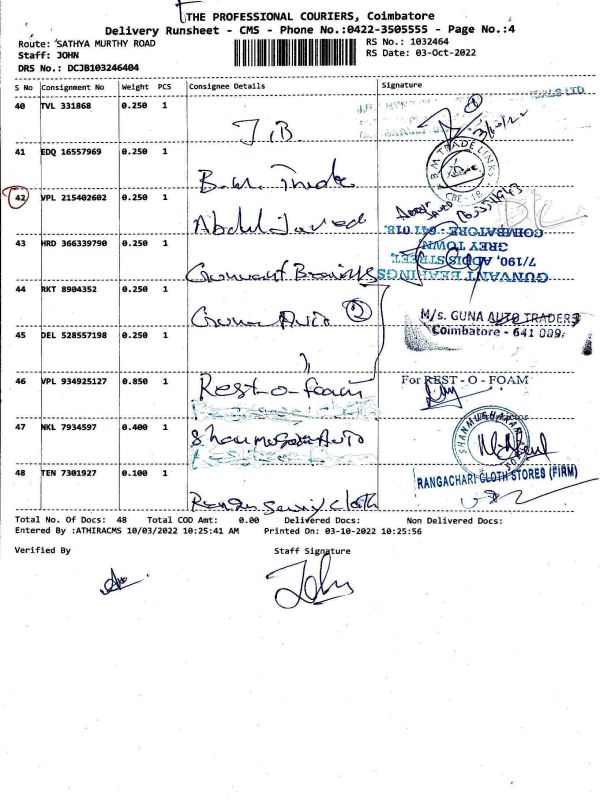 THE PROFESSIONAL COURIERS, Coimbatore
Delivery Runsheet - CMS - Phone No.:0422-3505555 - Page No.:4
Route: SATHYA MURTHY ROAD
RS No.: 1032464
Staff: JOHN
RS Date: 03-Oct-2022
DRS No.: DCJB103246404
S No Consignment No Weight PCS Consignee Details Signature
40 TVL 331868 0.250 1
J.B. 3/10/22
41 EDQ 16557969 0.250 1
B.M. Trade
B.M TRADE LINKS CBE - 18
42 VPL 215402602 0.250 1
Abdul Javed
43 HRD 366339790 0.250 1
Gunvant Bearings
GUNVANT BEARINGS
7/190, ADDIS STREET,
GREY TOWN
COIMBATORE - 641 018.
44 RKT 8904352 0.250 1
Guna Auto 2
M/s. GUNA AUTO TRADERS
Coimbatore - 641 009.
45 DEL 528557198 0.250 1
46 VPL 934925127 0.850 1
Rest-o-foam
For REST - O - FOAM
47 NKL 7934597 0.400 1
Shanmuga Auto
48 TEN 7301927 0.100 1
RANGACHARI CLOTH STORES (FIRM)
Cloth
Total No. Of Docs: 48 Total COD Amt: 0.00 Delivered Docs: Non Delivered Docs:
Entered By :ATHIRACMS 10/03/2022 10:25:41 AM Printed On: 03-10-2022 10:25:56
Verified By Staff Signature
John